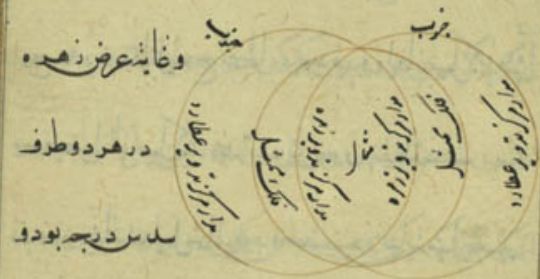 جنوب
جنوب
وغایة عرض زهره
در هر دو طرف
سدس درجه بود و
مدار مرکز تدویر عطارد
فلک ممثل
مدار مرکز تدویر زهره
شمال
مدار مرکز تدویر زهره
فلک ممثل
مدار مرکز تدویر عطارد